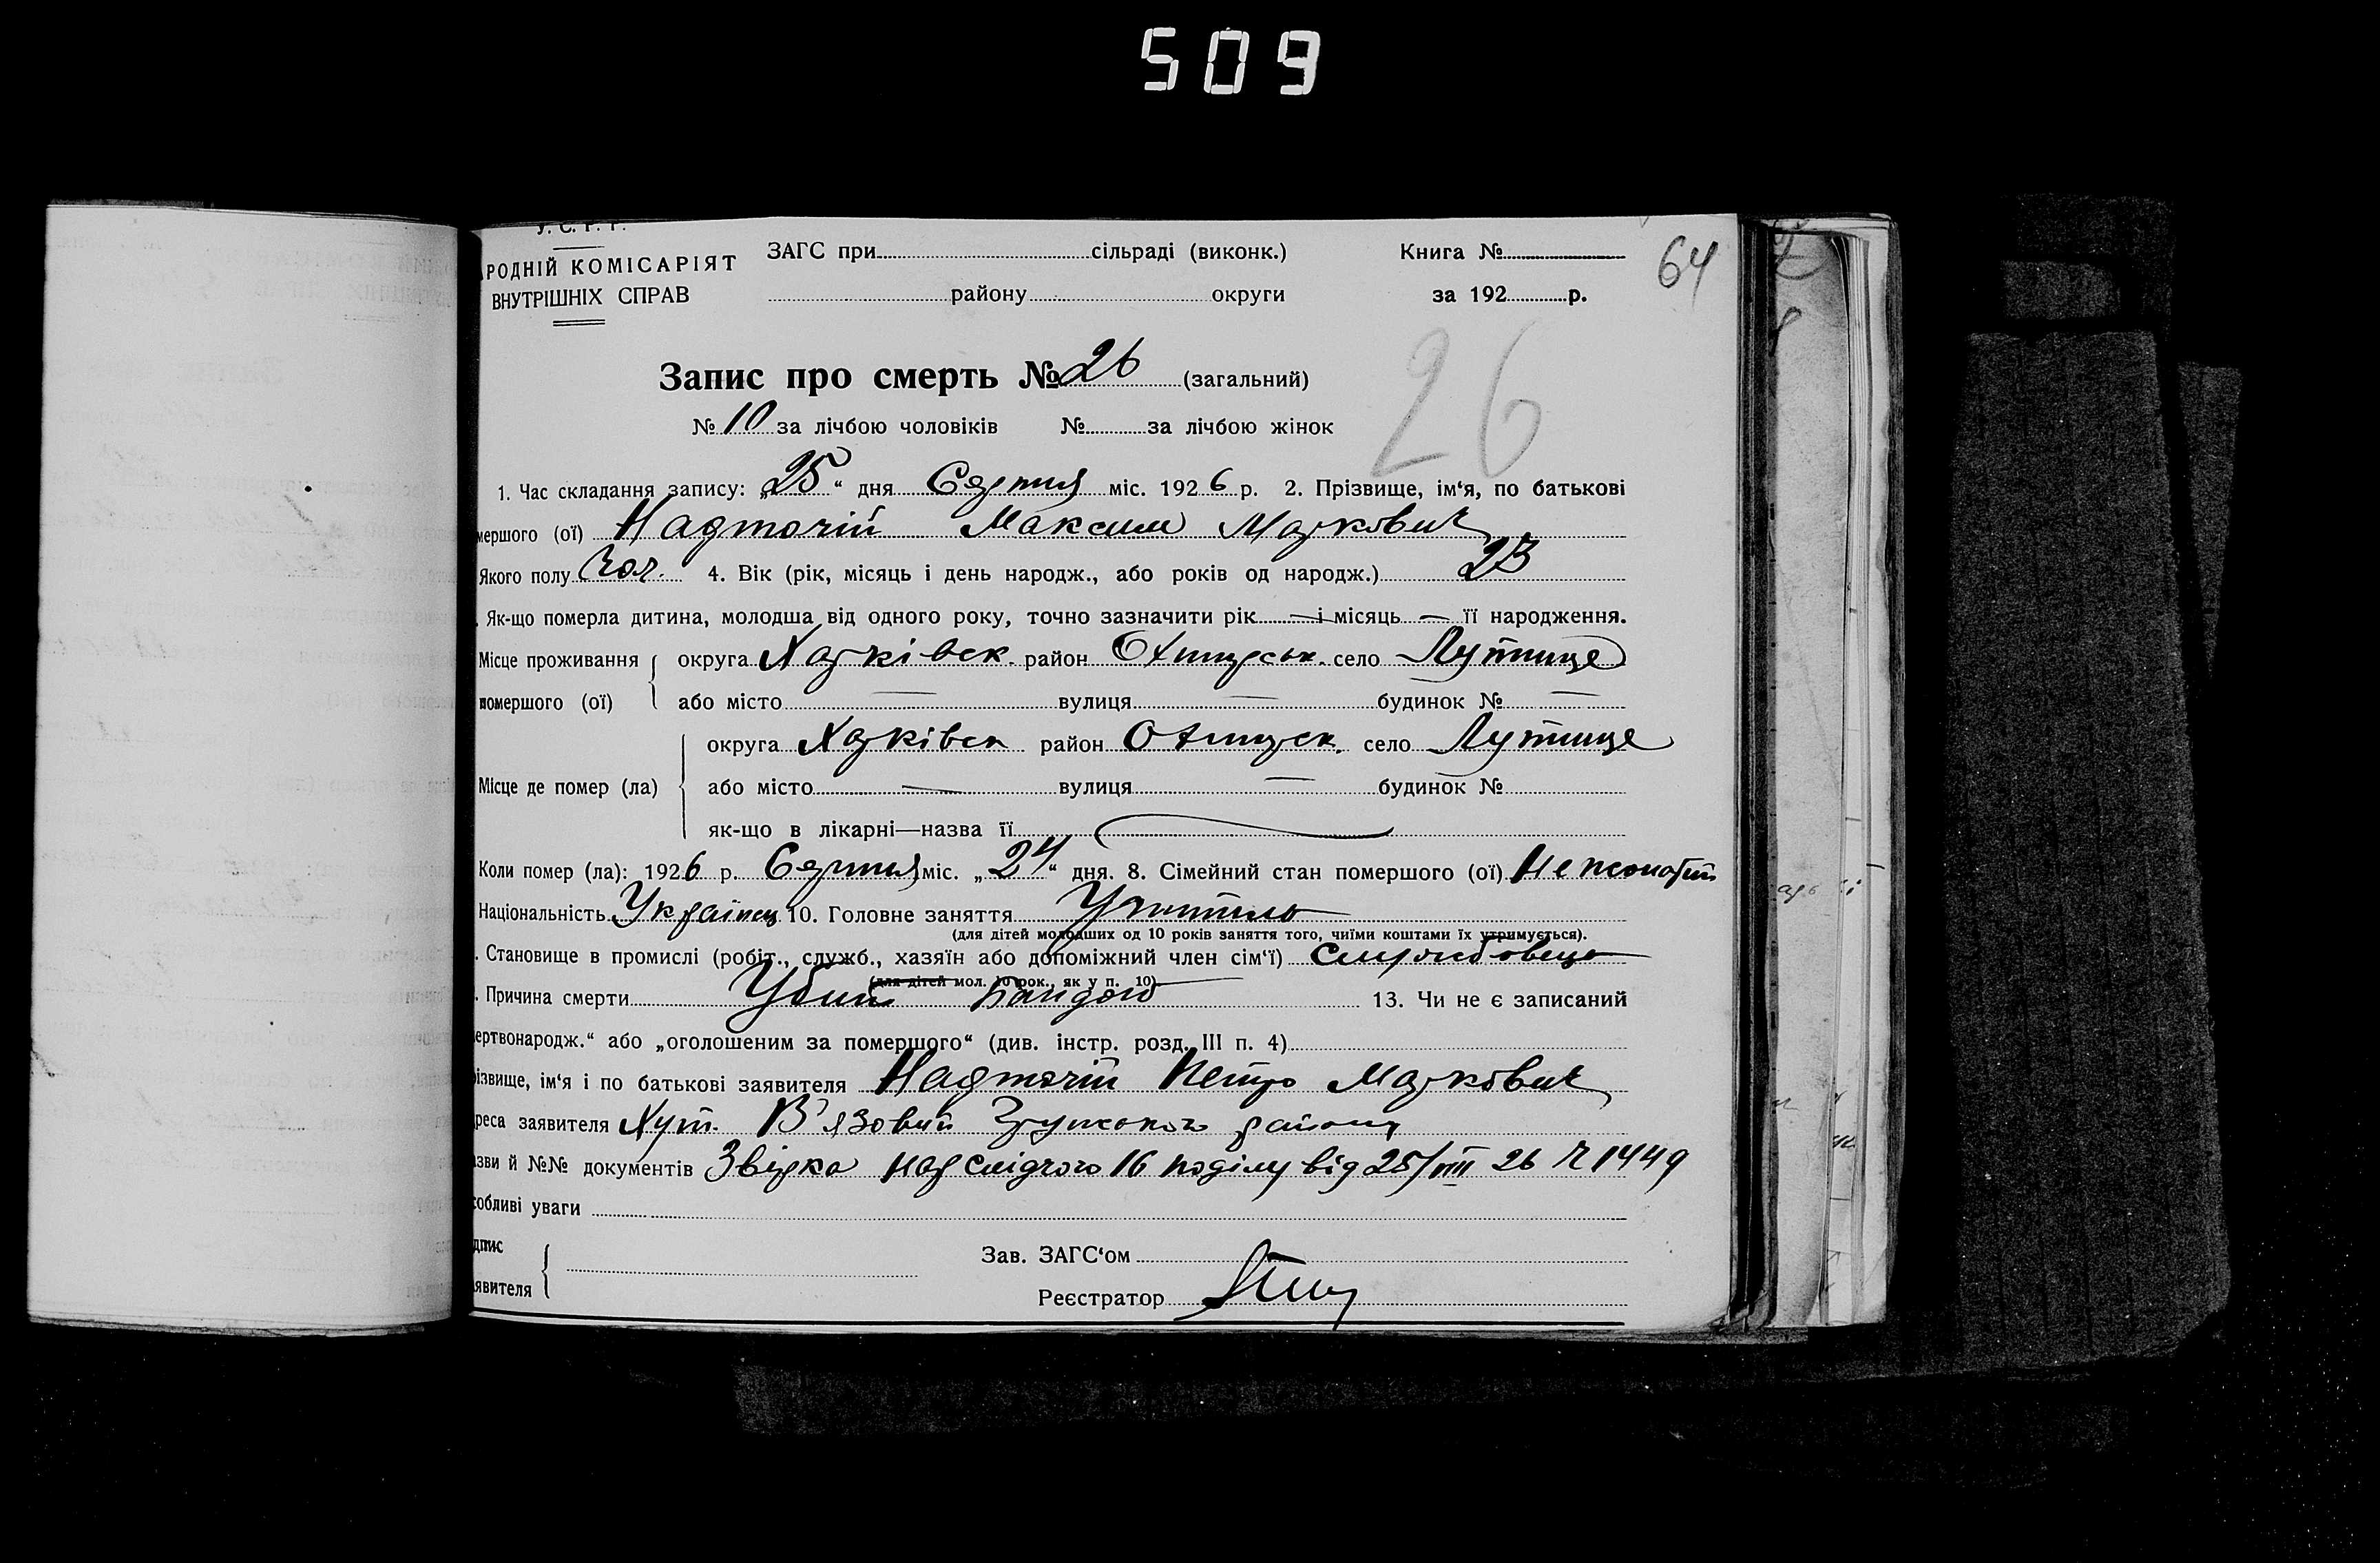 509
У. С. Р. Р.
РОДНІЙ КОМІСАРІЯТ ЗАГС при сільраді (виконк.) Книга № 64
ВНУТРІШНІХ СПРАВ району округи за 192 р.
Запис про смерть № 26 (загальний) 26
№ 10 за лічбою чоловіків № за лічбою жінок
1. Час складання запису: „25“ дня Серпня міс. 1926 р. 2. Прізвище, ім‘я, по батькові
мершого (ої) Надточій Максим Маркович
Якого полу Чол. 4. Вік (рік, місяць і день народж., або років од народж.) 23
. Як-що померла дитина, молодша від одного року, точно зазначити рік — і місяць — її народження.
Місце проживання округа Харківск. район Охтирськ. село Лутище
помершого (ої) або місто — вулиця — будинок № —
округа Харківск район Охтирск. село Лутище
Місце де помер (ла) або місто — вулиця — будинок №
як-що в лікарні—назва її
Коли помер (ла): 1926 р. Серпня міс. „24“ дня. 8. Сімейний стан помершого (ої) Не жонатий
Національність Українец 10. Головне заняття Учитель
(для дітей молодших од 10 років заняття того, чиїми коштами їх утримується).
. Становище в промислі (робіт., служб., хазяїн або допоміжний член сім‘ї)
(для дітей мол. 10 рок., як у п. 10)
. Причина смерти Убит бандою 13. Чи не є записаний
ертвонародж.“ або „оголошеним за помершого“ (див. інстр. розд. III п. 4)
різвище, ім‘я і по батькові заявителя Надточій Петро Маркович
реса заявителя Хут. В'язовий району
зви й №№ документів Звідка Нарслідчого 16 поділу від 25/VIII 26 № 1449
собливі уваги
дпис Зав. ЗАГС‘ом
явителя Реєстратор